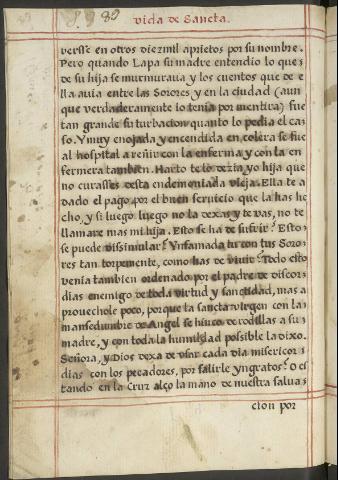 89
Vida de Sancta.
versse en otros diez mil aprietos por su nombre.
Pero quando Lapa su madre entendio lo que
de su hija se murmuraua y los cuentos que de e
lla auia entre las Sorores y en la ciudad (aun
que verdaderamente lo tenia por mentira) fue
tan grande su turbacion quanto lo pedia el ca=
so. Y muy enojada y encendida en colera se fue
al hospital a reñir con la enferma y con la en
fermera tambien. Harto te lo dezia yo hija que
no curasses desta endemoniada vieja. Ella te a
dado el pago por el buen seruicio que la has he
cho, y si luego luego no la dexas y te vas, no te
llamare mas mi hija. Esto se ha de sufrir? Esto
se puede dissimular? Ynfamada tu con tus Soro=
res tan torpemente, como has de viuir? Todo esto
venia tambien ordenado por el padre de discor=
dias enemigo de toda virtud y sanctidad, mas a
prouechole poco, porque la sancta virgen con la
mansedumbre de Angel se hinco de rodillas a su
madre, y con toda la humildad possible la dixo.
Señora, y Dios dexa de vsar cada dia misericor=
dias con los pecadores, por salirle yngratos? o es
tando en la Cruz alço la mano de nuestra salua=
cion por